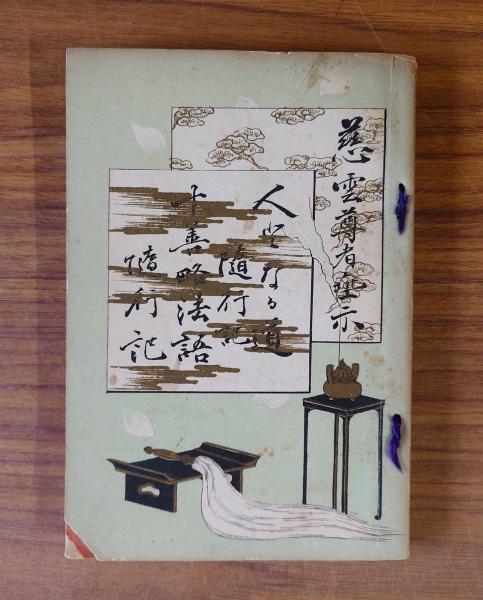 慈雲尊者垂示
人となる道
随行記
十善略法語
随行記